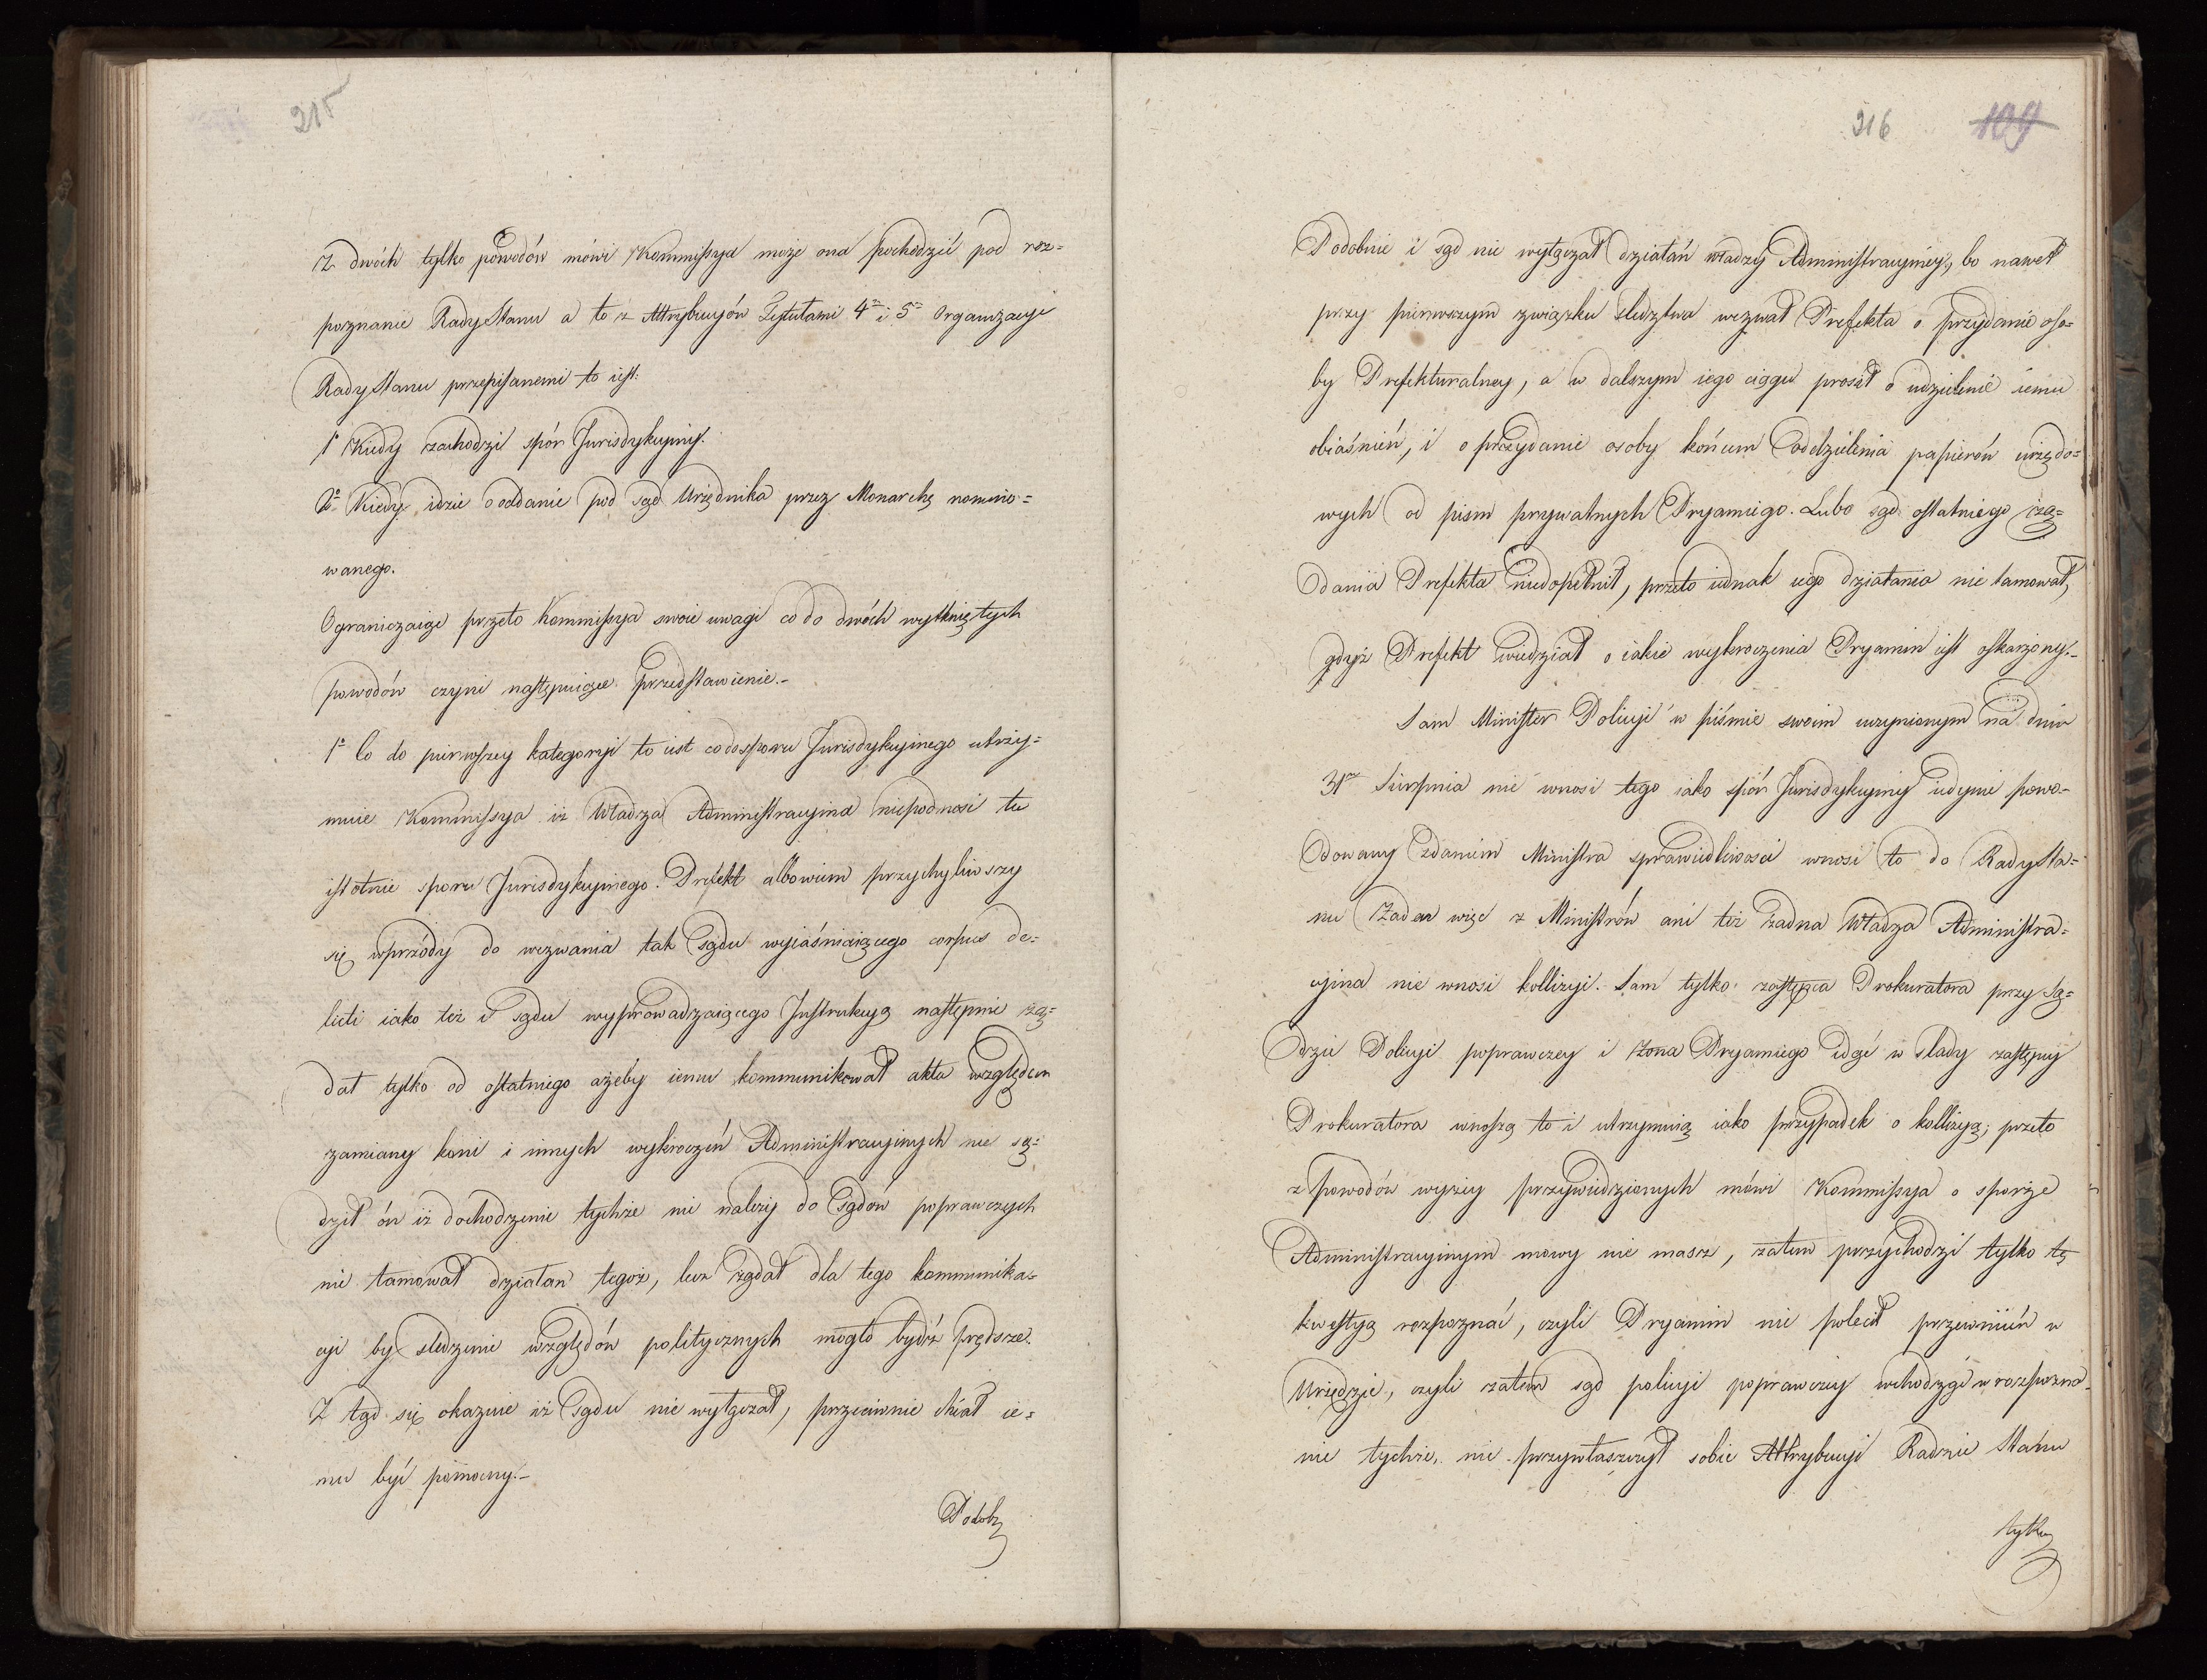 215
Z dwóch tylko powodów mówi Kommissya może ona pochodzić pod roz=
poznanie Rady Stanu a to z Attrybucyów Tytułami 4m i 5m Organizacyi
Rady Stanu przepisanemi to iest:
1o Kiedy zachodzi spór Jurisdykcyiny.
2o Kiedy idzie o oddanie pod sąd Urzędnika przez Monarchę nomino=
wanego.
Ograniczaiąc przeto Kommissya swoie uwagi co do dwóch wytkniętych
powodów czyni następuiące przedstawienie.-
1o Co do pierwszey kategoryi to iest co do sporu Jurisdykcyinego utrzy=
muie Kommissya iż Władza Administracyina niepodnosi tu
istotnie sporu Jurisdykcyinego. Prefekt albowiem przychyliwszy
się wprzódy do wezwania tak Sądu wyiaśniaiącego corpus de=
licti iako też i Sądu wyprowadzaiącego Instrukcyą następnie żą=
dał tylko od ostatniego ażeby iemu kommunikował akta względem
zamiany koni i innych wykroczeń Administracyinych nie są=
dził ón iż dochodzenie tychże nie należy do Sądów poprawczych
nie tamował działan tegoż, lecz żądał dla tego kommunika=
cyi by sledzenie względów politycznych mogło bydź prędsze.
Z tąd się okazuie iż Sądu nie wyłączał, przeciwnie chciał ie=
mu być pomocny.-
Podob
216 109
Podobnie i sąd nie wyłączał działań władzy Administracyiney, bo nawet
przy pierwszym związku sledztwa wezwał Prefekta o przydanie oso=
by Prefekturalney, a w dalszym iego ciągu prosił o udzielenie iemu
obiaśnień, i o przydanie osoby końcem oddzielenia papierów urzędo=
wych od pism prywatnych Pryamiego. Lubo sąd ostatniego żą=
dania Prefekta niedopełnił, przeto iednak iego działania nie tamował,
gdyż Prefekt wiedział o iakie wykroczenia Pryamin iest oskarzony.-
Sam Minister Policyi w piśmie swoim uczynionym na dniu
31m Sierpnia nie wnosi tego iako spór Jurisdykcyiny iedynie powo=
dowany zdaniem Ministra sprawiedliwosci wnosi to do Rady Sta=
nu Żaden więc z Ministrów ani też żadna Władza Administra=
cyina nie wnosi kollizyi. Sam tylko zastępca Prokuratora przy Są=
dzie Policyi poprawczey i żona Pryamiego idąc w slady zastępcy
Prokuratora wnoszą to i utrzymuią iako przypadek o kollizyą; przeto
z powodów wyżey przywiedzionych mówi Kommissya o sporze
Administracyinym mowy nie masz, zatem przychodzi tylko tę
kwestyą rozpoznać, czyli Pryamin nie polecił przewinień w
Urzędzie, czyli zatem sąd policyi poprawczey wchodząc w rozpozna=
nie tychże, nie przywłaszczył sobie Attrybucyi Radzie Stanu
tylko